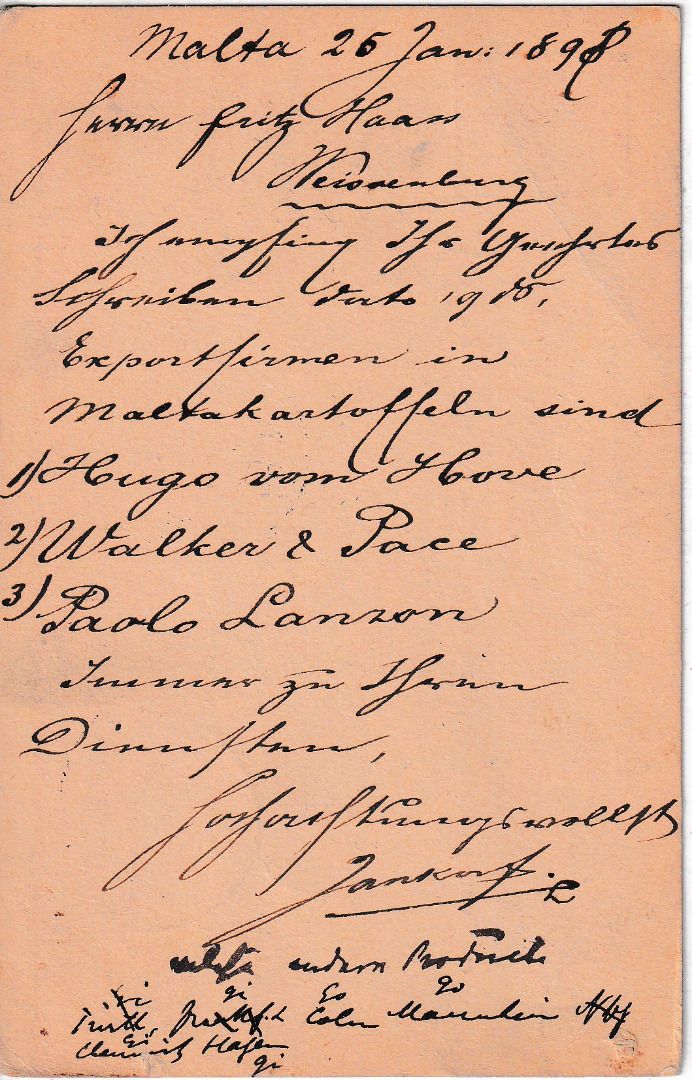 Malta 25 Jan: 1898
Herrn Fritz Haas
Weissenburg
Ich empfing Ihr Geehrtes
Schreiben dato 19 ds,
Exportfirmen in
Maltakartoffeln sind
1) Hugo vom Hove
2) Walker & Pace
3) Paolo Lanzon
Immer zu Ihren
Diensten,
Hochachtungsvollst
andern Produkte
gi gi go go
Cöln Mannheim Hbg
Hagen
gi